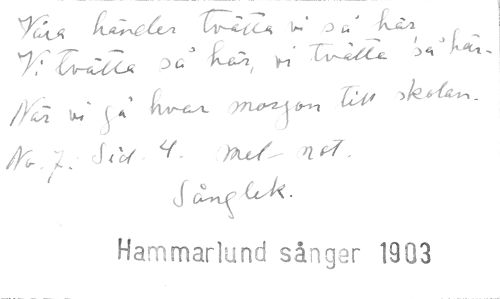 Våra händer tvätta vi så här,
Vi tvätta så här, vi tvätta så här.
När vi gå hvar morgon till skolan.
No. 7. Sid. 4. mel- not.
Sånglek.
Hammarlund sånger 1903